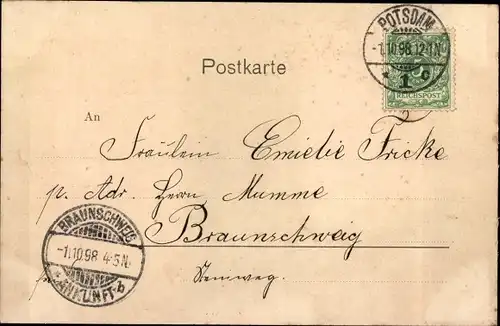 POTSDAM
-1.10.98.12-1N.
* 1 c
5
REICHSPOST
Postkarte
An
Fräulein Emielie Fricke
p. Adr. Herrn Mumme
Braunschweig
Steinweg.
BRAUNSCHWEIG
-1.10.98 4-5N.
* ANKUNFT b